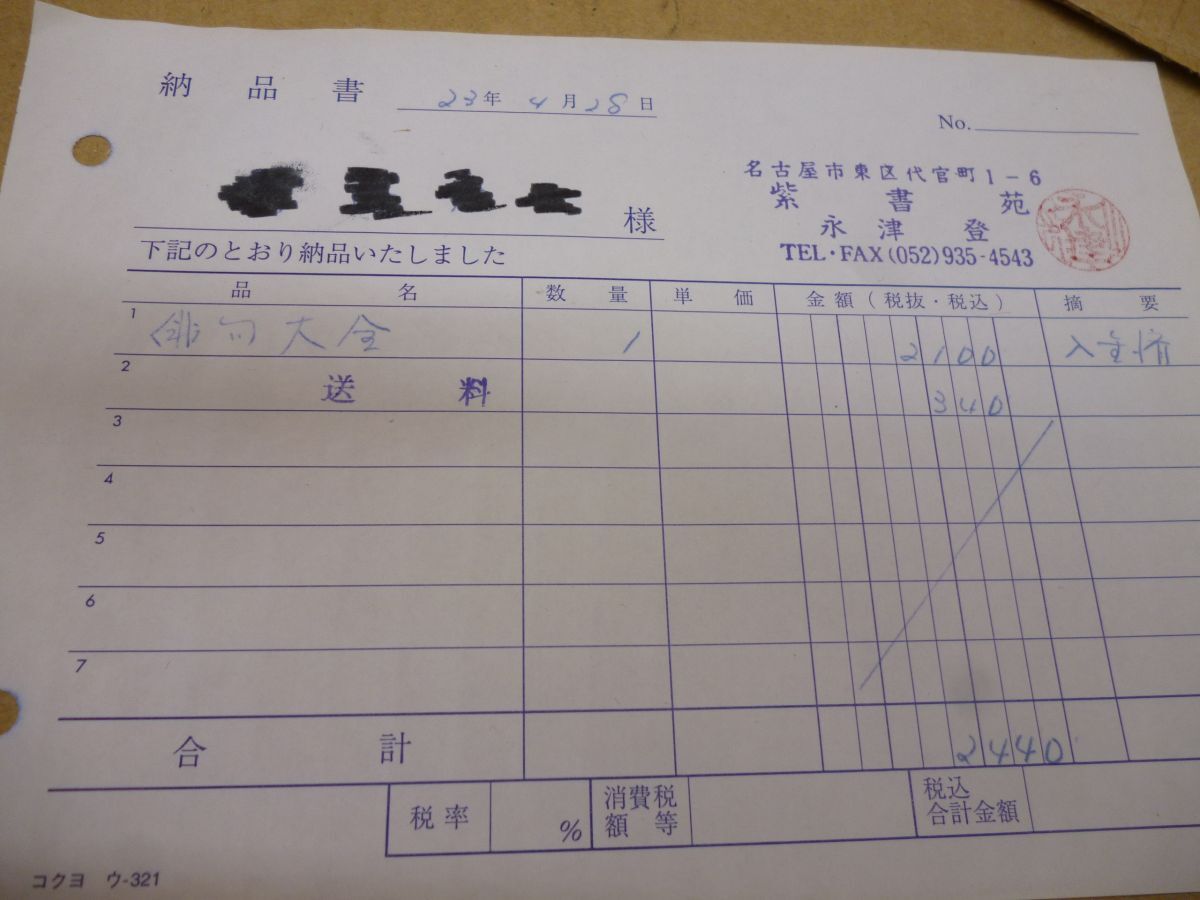 納品書 23年4月28日
No.
名古屋市東区代官町1-6
紫書苑
永津登
TEL・FAX(052)935-4543
様
下記のとおり納品いたしました
品名 数量 単価 金額(税抜・税込) 摘要
1 俳句大全 1 2100 入金済
2 送料 340
3
4
5
6
7
合計 2440
税率 % 消費税額等 税込合計金額
コクヨ ウ-321